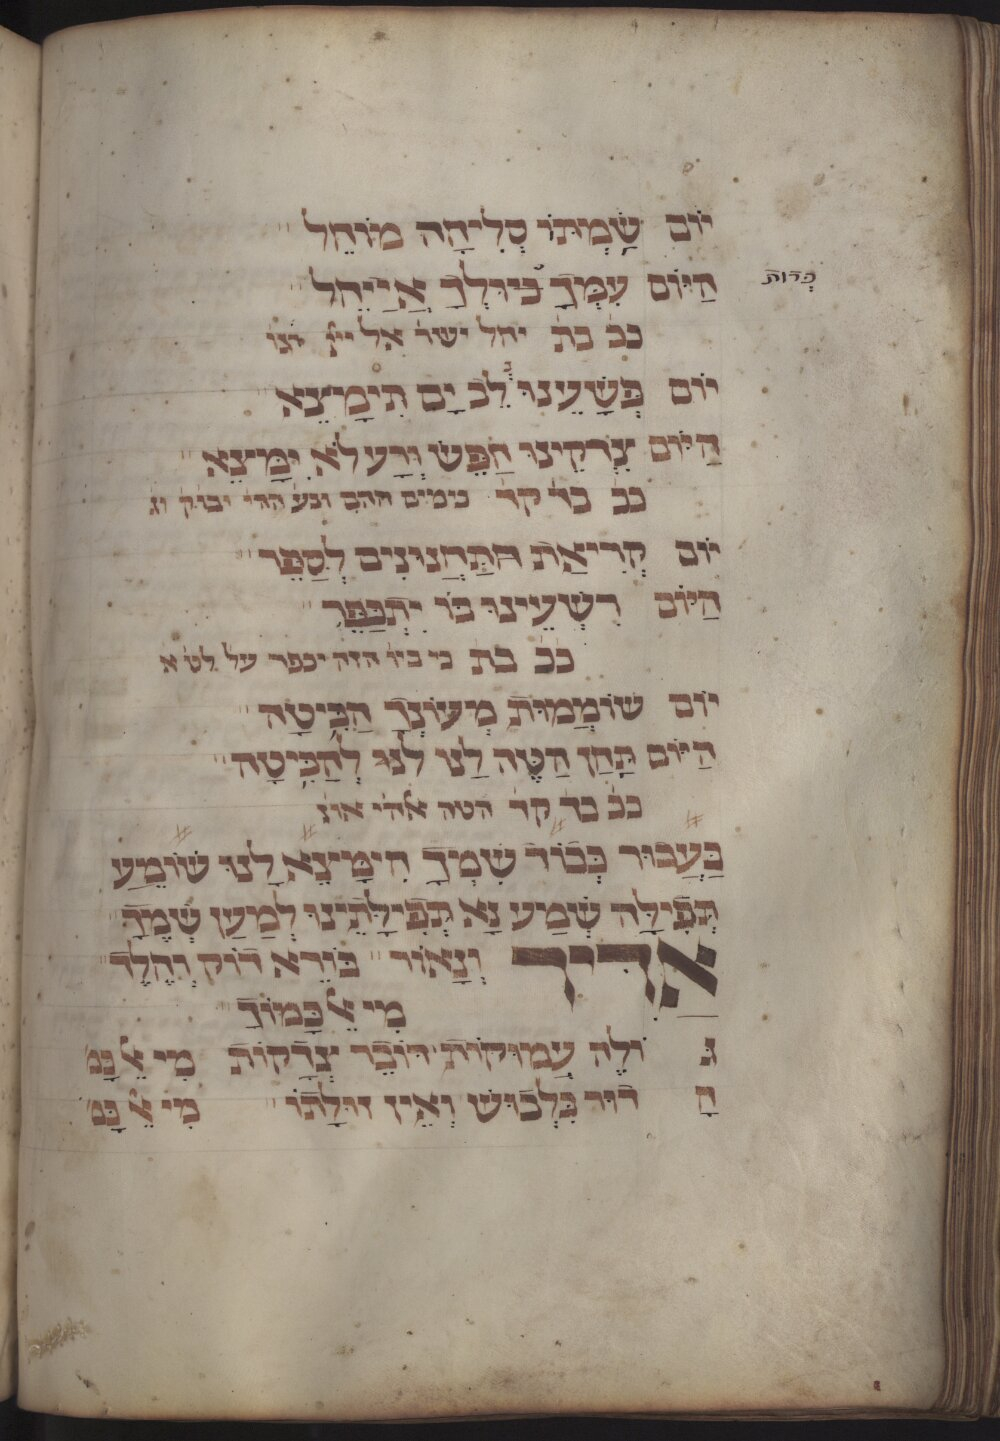 יוֹם שַׂמְתּוֹ סְלִיחָה מוֹחֵל
הַיּוֹם עַמְּךָ כּוּלְךָ אֲיַיחֵל
פדות
ככ בת יחל ישר אל ייי
יוֹם פְּשָׁעֵנוּ לֵב יָם תִּימָצֵא
הַיּוֹם צִדְקֵינוּ חַפֵּשׂ וְרַע לֹא יִמָּצֵא
ככ בד קד בימים ההם ובע ההי יבוק
יוֹם קְרִיאַת תַּחֲנוּנִים לְסַפֵּר
הַיּוֹם רִשְׁעֵינוּ בּוֹ יִתְכַּפֵּר
ככ בת כי ביו הזה יכפר על לט א
יוֹם שׁוֹמֲמוּת מְעוֹנְךָ הַבִּיטָה
הַיּוֹם תָּחַן הַטֶּה לָנוּ לְהַבִּיטָה
ככ בד קד הטה אלהי
בַּעֲבוּר כְּבוֹד שִׁמְךָ הִימָּצֵא לָנוּ שׁוֹמֵעַ
תְּפִילָּה שְׁמַע נָא תְּפִילָּתֵינוּ לְמַעַן שְׁמֶךָ
אַדִּיר וְנָאוֹר בּוֹרֵא דּוֹק וְחֶלֶד
מִי אֵל כָּמוֹךָ
גּ וֹלֶה עֲמוּקוֹת דּוֹבֵר צְדָקוֹת מִי אֵל כָּמ
הָ דוּר בִּלְבוּשׁ וְאֵין זוּלָתוֹ מִי אֵל כָּמ